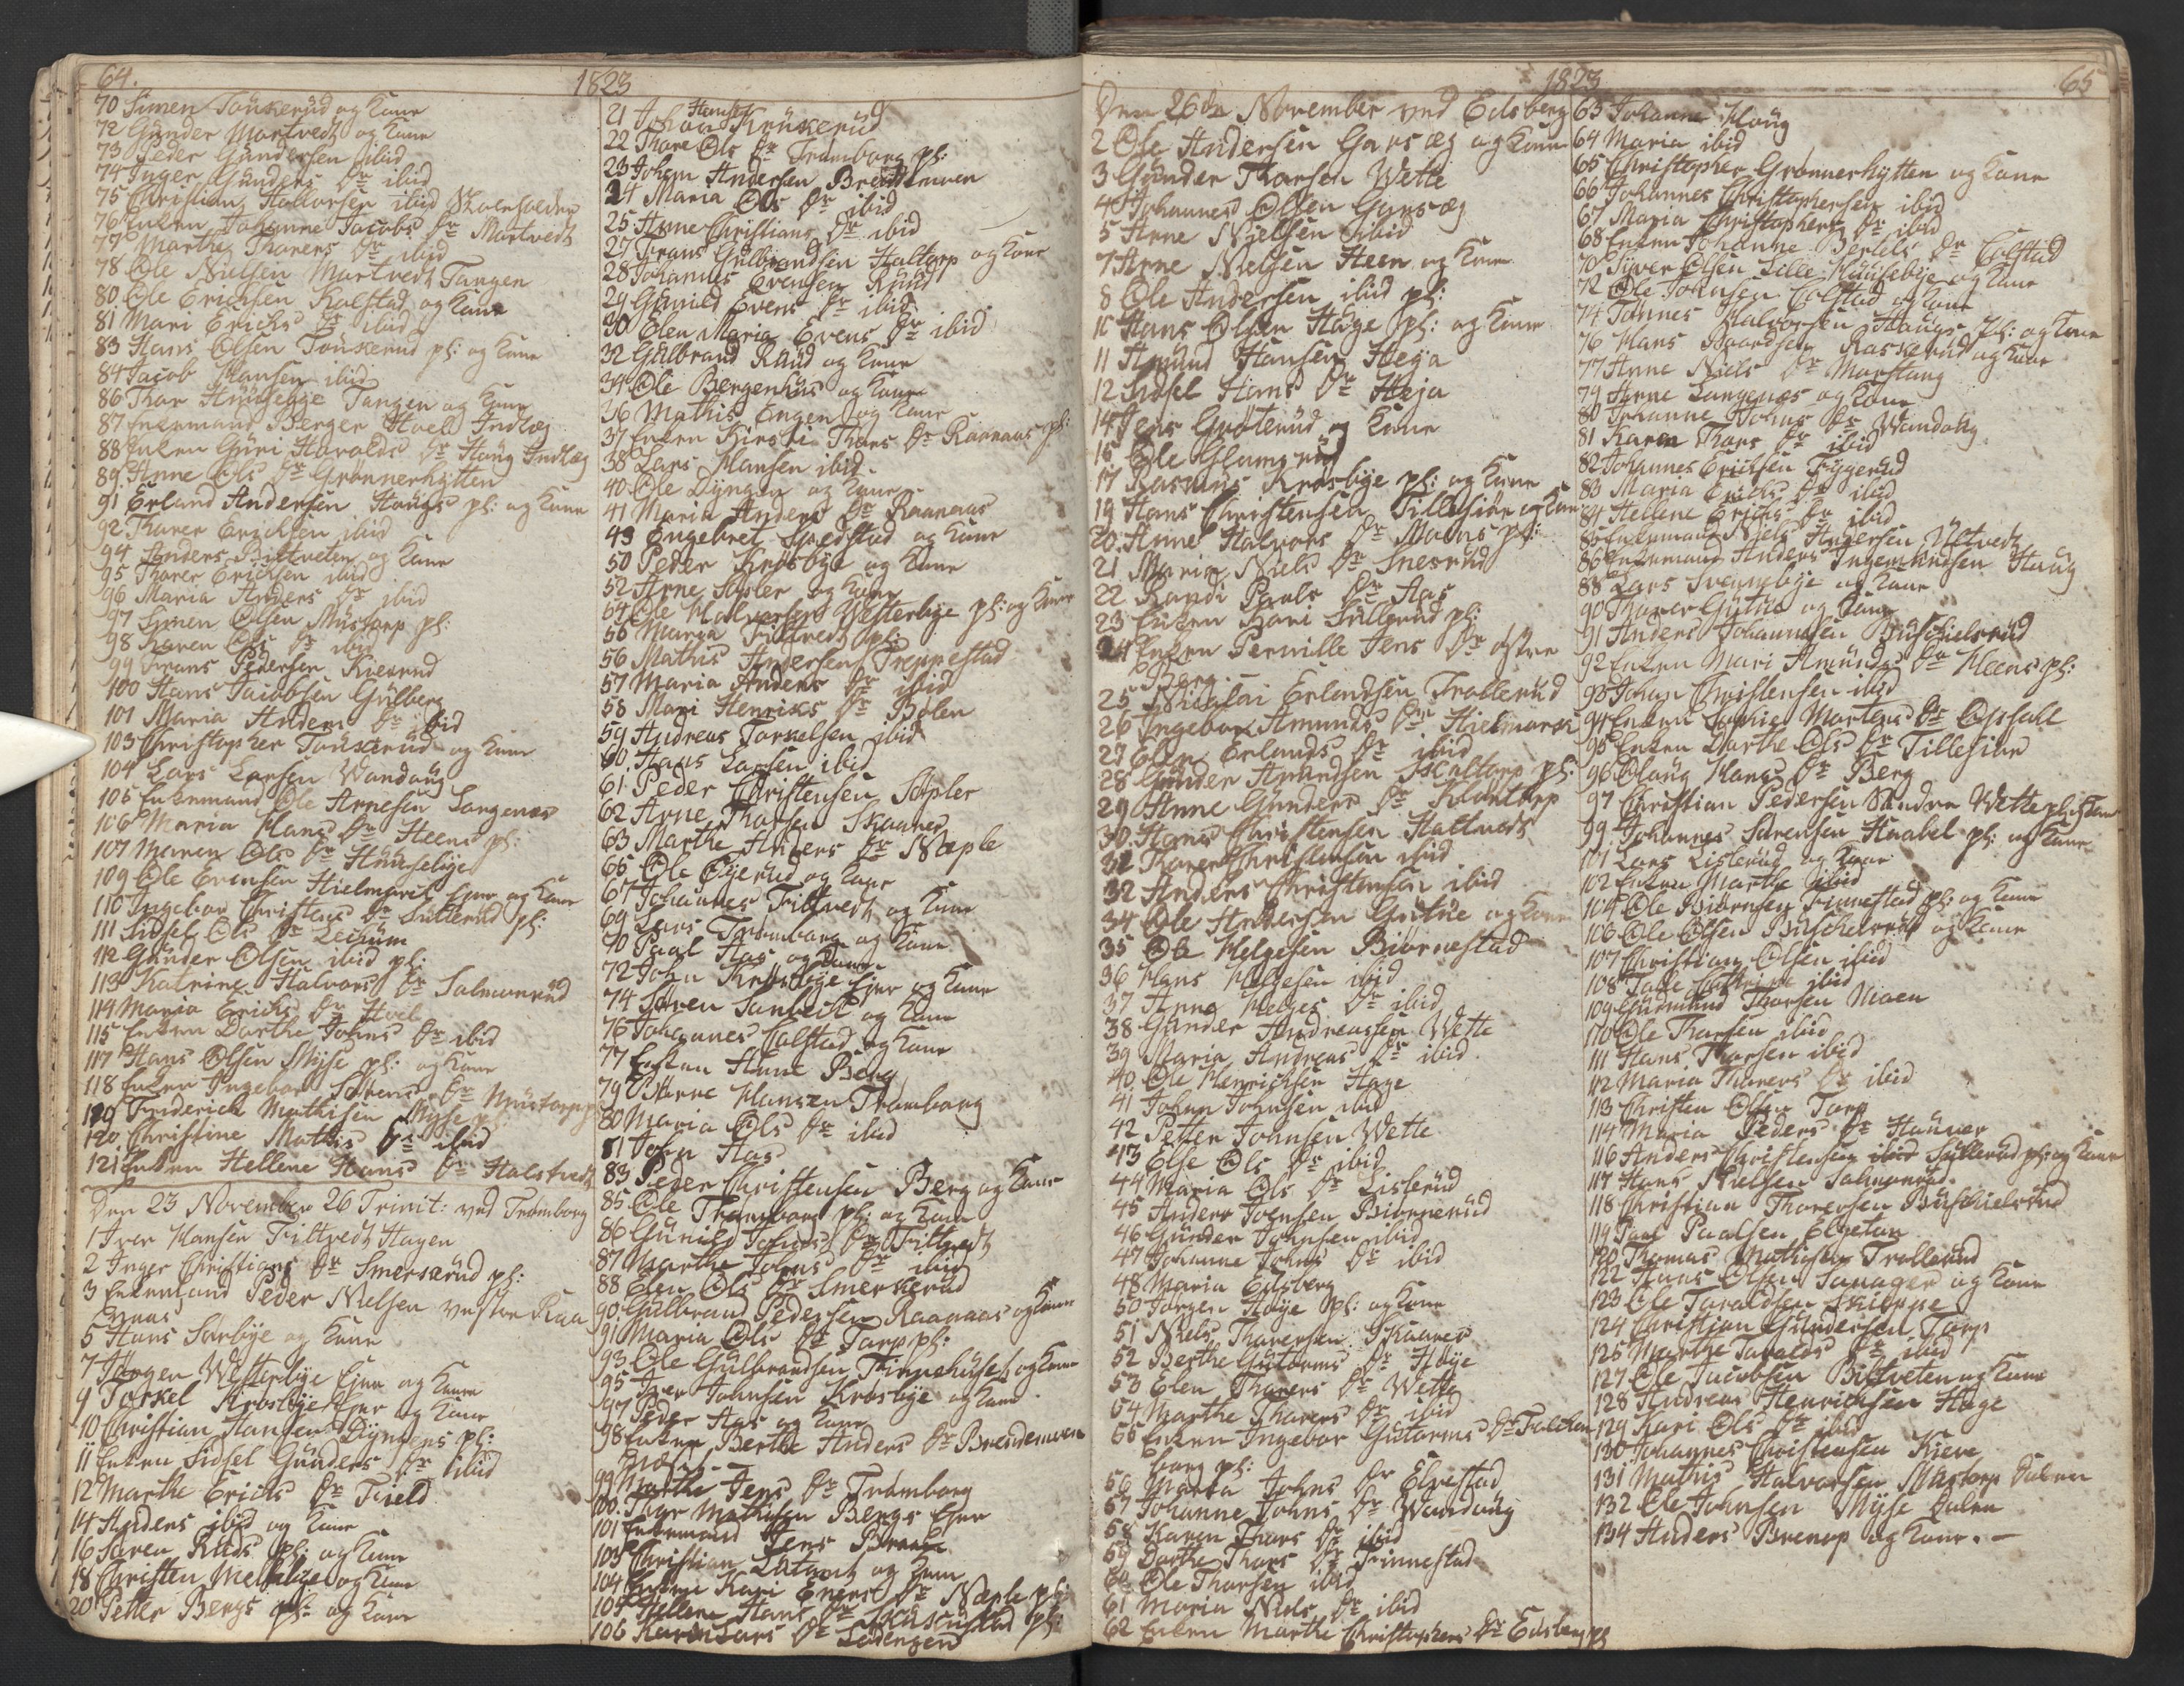 64.
1823
70 Simen Touserud og Kone
72 Gunder Martvedt og Kone
73 Peder Gundersen ibid
74 Inger Gunders Dr ibid
75 Christian Halvorsen ibid
76 Enken Johanne Jacobs Dr Martvedt
77 Marthe Thorers Dr ibid
78 Ole Nielsen Martvedt Tangen
80 Ole Erichsen Kolstad og Kone
81 Mari Erichs Dr ibid
83 Hans Olsen Touserud pl: og Kone
84 Jacob Hansen ibid
86 Thor Tangen og Kone
87 Enkemand Berger Hoel Indlæg
88 Enken Guri Haralds Dr Haug Indlæg
89 Anne Ols Dr Grønnerhytten
91 Erland Andersen Haugs pl: og Kone
92 Thorer Erichsen ibid
94 Anders Biltveten og Kone
95 Thorer Erichsen ibid
96 Maria Anders Dr ibid
97 Simen Olsen Mustorp pl:
98 Karen Ols Dr ibid
99 Frans Pedersen
100 Hans Jacobsen Gulberg
101 Maria Anders Dr ibid
103 Christopher Touserud og Kone
104 Lars Larsen Wandaug
105 Enkemand Ole Arnesen Langenæs
106 Maria Hans Dr Heens pl:
107 Maren Ols Dr Huusebye
109 Ole Evensen Hielmark Eier og Kone
110 Ingebor Christens Dr Sullerud pl:
111 Sidsel Ols Dr Lekum
112 Gunder Olsen ibid pl:
113 Katrine Halvors Dr Salmonrud
114 Maria Erichs Dr Hoel
115 Enken Dorthe Johns Dr ibid
117 Hans Olsen Myse pl: og Kone
118 Enken Ingebor Sørens Dr Mustorp p
119 Friderich Mathisen Myse p
120 Christine Mathis Dr ibid
121 Enken Hellene Hans Dr Halstvedt
Den 23 November 26 Trinit: ved Trømborg
1 Iver Hansen Tiltvedt Hagen
2 Inger Christians Dr Smerkerud pl:
3 Enkemand Peder Nielsen vestre Raa
naas
5 Hans Sørbye og Kone
7 Hogen Westerbye Eier og Kone
9 Torkel Krosbye Eier og Kone
10 Christian Hansen Dyngens pl:
11 Enken Sidsel Gunders Dr ibid
12 Marthe Erichs Dr Field
14 Anders ibid og Kone
16 Søren Ruds pl: og Kone
18 Christen og Kone
20 Petter Bergs pl: og Kone
Hansen
21 Johan Krukerud
22 Thore Ols Dr Trømborg pl:
23 Johan Andersen
24 Maria Ols Dr ibid
25 Anne Christians Dr ibid
27 Frans Gulbrandsen Haltorp og Kone
28 Johannes Evensen Ruud
29 Gunild Evens Dr ibid
30 Elen Maria Evens Dr ibid
32 Gulbrand Ruud og Kone
34 Ole Bergenhus og Kone
36 Mathis Engen og Kone
37 Enken Kirsti Thors Dr Raanaas pl:
38 Lars Hansen ibid
40 Ole Dyngen og Kone
41 Maria Anders Dr Raanaas
43 Engebret og Kone
50 Peder Krosbye og Kone
52 Arne og Kone
54 Ole Halvorsen Westerbye pl: og Kone
55 Maria Tiltvedt pl:
56 Mathis Andersen Treppestad
57 Maria Anders Dr ibid
58 Mari Henriks Dr Bolen
59 Andreas Torkelsen ibid
60 Hans Larsen ibid
61 Peder Christensen
62 Arne Thorsen Skaarer
63 Marthe Anders Dr Næple
65 Ole Øyerud og Kone
67 Johannes Tiltvedt og Kone
69 Lars Trømborg og Kone
70 Paal Aas og Kone
72 John Krosbye Eier og Kone
74 Søren og Kone
76 Johannes Colstad og Kone
77 Enken Anne Berg
79 Hansen Trømborg
80 Maria Ols Dr ibid
81 John Aas
83 Peder Christensen Berg og Kone
85 Ole Trømborg pl: og Kone
86 Gunild Johns Dr Tiltvedt
87 Marthe Johns Dr ibid
88 Elen Ols Dr Smerkerud
90 Gulbrand Pedersen Raanaas og Kone
91 Maria Ols Dr Torp pl:
93 Ole Gulbrandsen og Kone
95 Iver Johnsen Krosbye og Kone
97 Peder Aas og Kone
98 Enken Berthe Anders Dr
99 Marthe Jens Dr Trømborg
100 Thor Mathisen Bergs Eier
101 Enkemand Jens
103 Christian og Kone
104 Enken Kari Eners Dr Næple pl:
105 Hellene Hans Dr pl:
106 Karen Lars Dr
1823
65
Den 26de November ved Eidsberg
2 Ole Andersen Garsæg og Kone
3 Gunder Thorsen Wette
4 Johannes Olsen Garsæg
5 Arne Nielsen ibid
7 Arne Nielsen Heen og Kone
8 Ole Andersen ibid pl:
10 Hans Olsen Hage pl: og Kone
11 Amund Hansen Heja
12 Sidsel Hans Dr Heja
14 Jens Grøterud og Kone
15 Ole
17 Rasmus Krosbye pl: og Kone
19 Hans Christensen Tillesiør og Kone
20 Anne Halvors Dr Moens pl:
21 Maria Niels Dr Snesrud
22 Randi Paals Dr Aas
23 Enken Kari Sullerud pl:
24 Enken Pernille Jens Dr østre
Berg.
25 Nicolai Erlandsen Trollerud
26 Ingebor Amunds Dr Hielmark
27 Elen Erlands Dr ibid
28 Gunder Amundsen Haltorp pl:
29 Anne Gunders Dr
30 Hans Christensen Haltvedt
31 Thorer Christensen ibid
32 Anders Christensen ibid
34 Ole Andersen Gutue og Kone
35 Ole Helgesen Biørnestad
36 Hans Helgesen ibid
37 Anne Helges Dr ibid
38 Gunder Andreassen Wette
39 Maria Andreas Dr ibid
40 Ole Henrichsen Hage
41 John Johnsen ibid
42 Petter Johnsen Wette
43 Else Ols Dr ibid
44 Maria Ols Dr Lislerud
45 Anders Joensen Biønnerud
46 Gunder Johnsen ibid
47 Johanne Johns Dr ibid
48 Maria Edsberg
50 Jørgen Høye pl: og Kone
51 Niels Thoresen Skaarer
52 Berthe Gutorms Dr Høye
53 Elen Thorers Dr Wette
54 Marthe Thorers Dr ibid
55 Enken Ingebor Gutorms Dr Falken
borg pl:
56 Maria Johns Dr Elvestad
57 Johanne Johns Dr Wandaug
58 Karen Thors Dr ibid
59 Dorthe Thors Dr Finnestad
60 Ole Thorsen ibid
61 Maria Niels Dr ibid
62 Enken Marthe Christophers Dr Edsberg pl
63 Johanne Haug
64 Maria ibid
65 Christopher Grønnerhytten og Kone
66 Johannes Christophersen ibid
67 Maria Christophers Dr ibid
68 Enken Johanne Bertels Dr Colstad
70 Siver Olsen Lille Huusebye og Kone
72 Ole Johnsen Colstad og Kone
74 Tønnes Halvorsen Haugs pl: og Kone
76 Hans Baardsen Raskerud og Kone
77 Anne Niels Dr Morstang
79 Arne Langenæs og Kone
80 Johanne Johns Dr Wandaug
81 Karen Thors Dr ibid
82 Johannes Erichsen Fygerud
83 Maria Erichs Dr ibid
84 Hellene Erichs Dr ibid
85 Enkemand Niels Andersen
86 Enkemand Anders Ingebrichsen Haug
88 Lars Svennebye og Kone
90 Thorer Gutue og Kone
91 Anders Johannesen Buschielsrud
92 Enken Mari Amunds Dr Heens pl:
93 Johan Christensen ibid
94 Enken Mortens Dr Opsahl
95 Enken Dorthe Ols Dr Tillesiør
96 Olaug Hans Dr Berg
97 Christian Pedersen Søndre Wette pl: og Kone
99 Johannes Sørensen Haabel pl: og Kone
101 Lars Lislerud og Kone
102 Enken Marthe ibid
104 Ole Biørnsen Finnestad pl: og Kone
106 Ole Olsen Buschelsrud og Kone
107 Christian Olsen ibid
108 ibid
109 Gudmund Thorsen Moen
110 Ole Thorsen ibid
111 Hans Thorsen ibid
112 Maria Thorers Dr ibid
113 Christen Olsen Torp
114 Maria Peders Dr Hauner
116 Anders Christensen ibid Sullerud pl: og Kone
117 Hans Nielsen Salmonrud.
118 Christian Thoresen Buschielsrud
119 Paal Paalsen Elgetun
120 Thomas Mathisen Trollerud
122 Hans Olsen og Kone
123 Ole Taraldsen
124 Christian Gundersen Torp
125 Marthe Taralds Dr ibid
127 Ole Jacobsen Biltveten og Kone
128 Andreas Henrichsen Hage
129 Kari Ols Dr ibid
130 Johannes Christensen
131 Mathis Halvorsen Mustorp
132 Ole Johnsen Myse
134 Anders Brenop og Kone. –